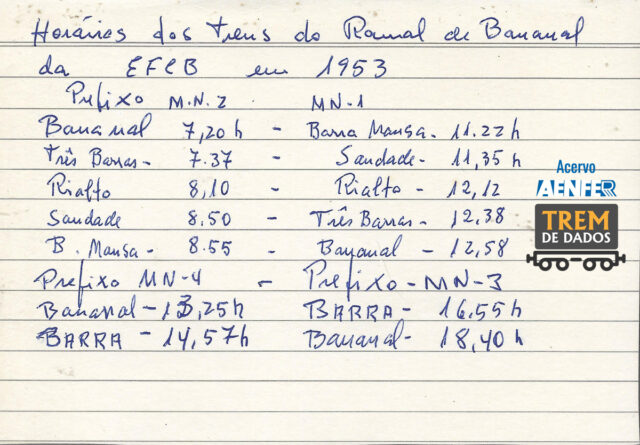 Horários dos trens do Ramal de Bananal
da EFCB em 1953
Prefixo M.N.2 MN-1
Bananal 7,20h - Barra Mansa - 11.22h
Três Barras - 7.37 Saudade - 11,35h
Rialto 8,10 - Rialto - 12,12
Saudade 8.50 - Três Barras - 12,38
B. Mansa - 8.55 - Bananal - 12,58
Prefixo MN-4 - Prefixo - MN-3
Bananal - 13,25h BARRA - 16,55h
BARRA - 14,57h Bananal - 18,40h
Acervo
AENFER
TREM
DE DADOS